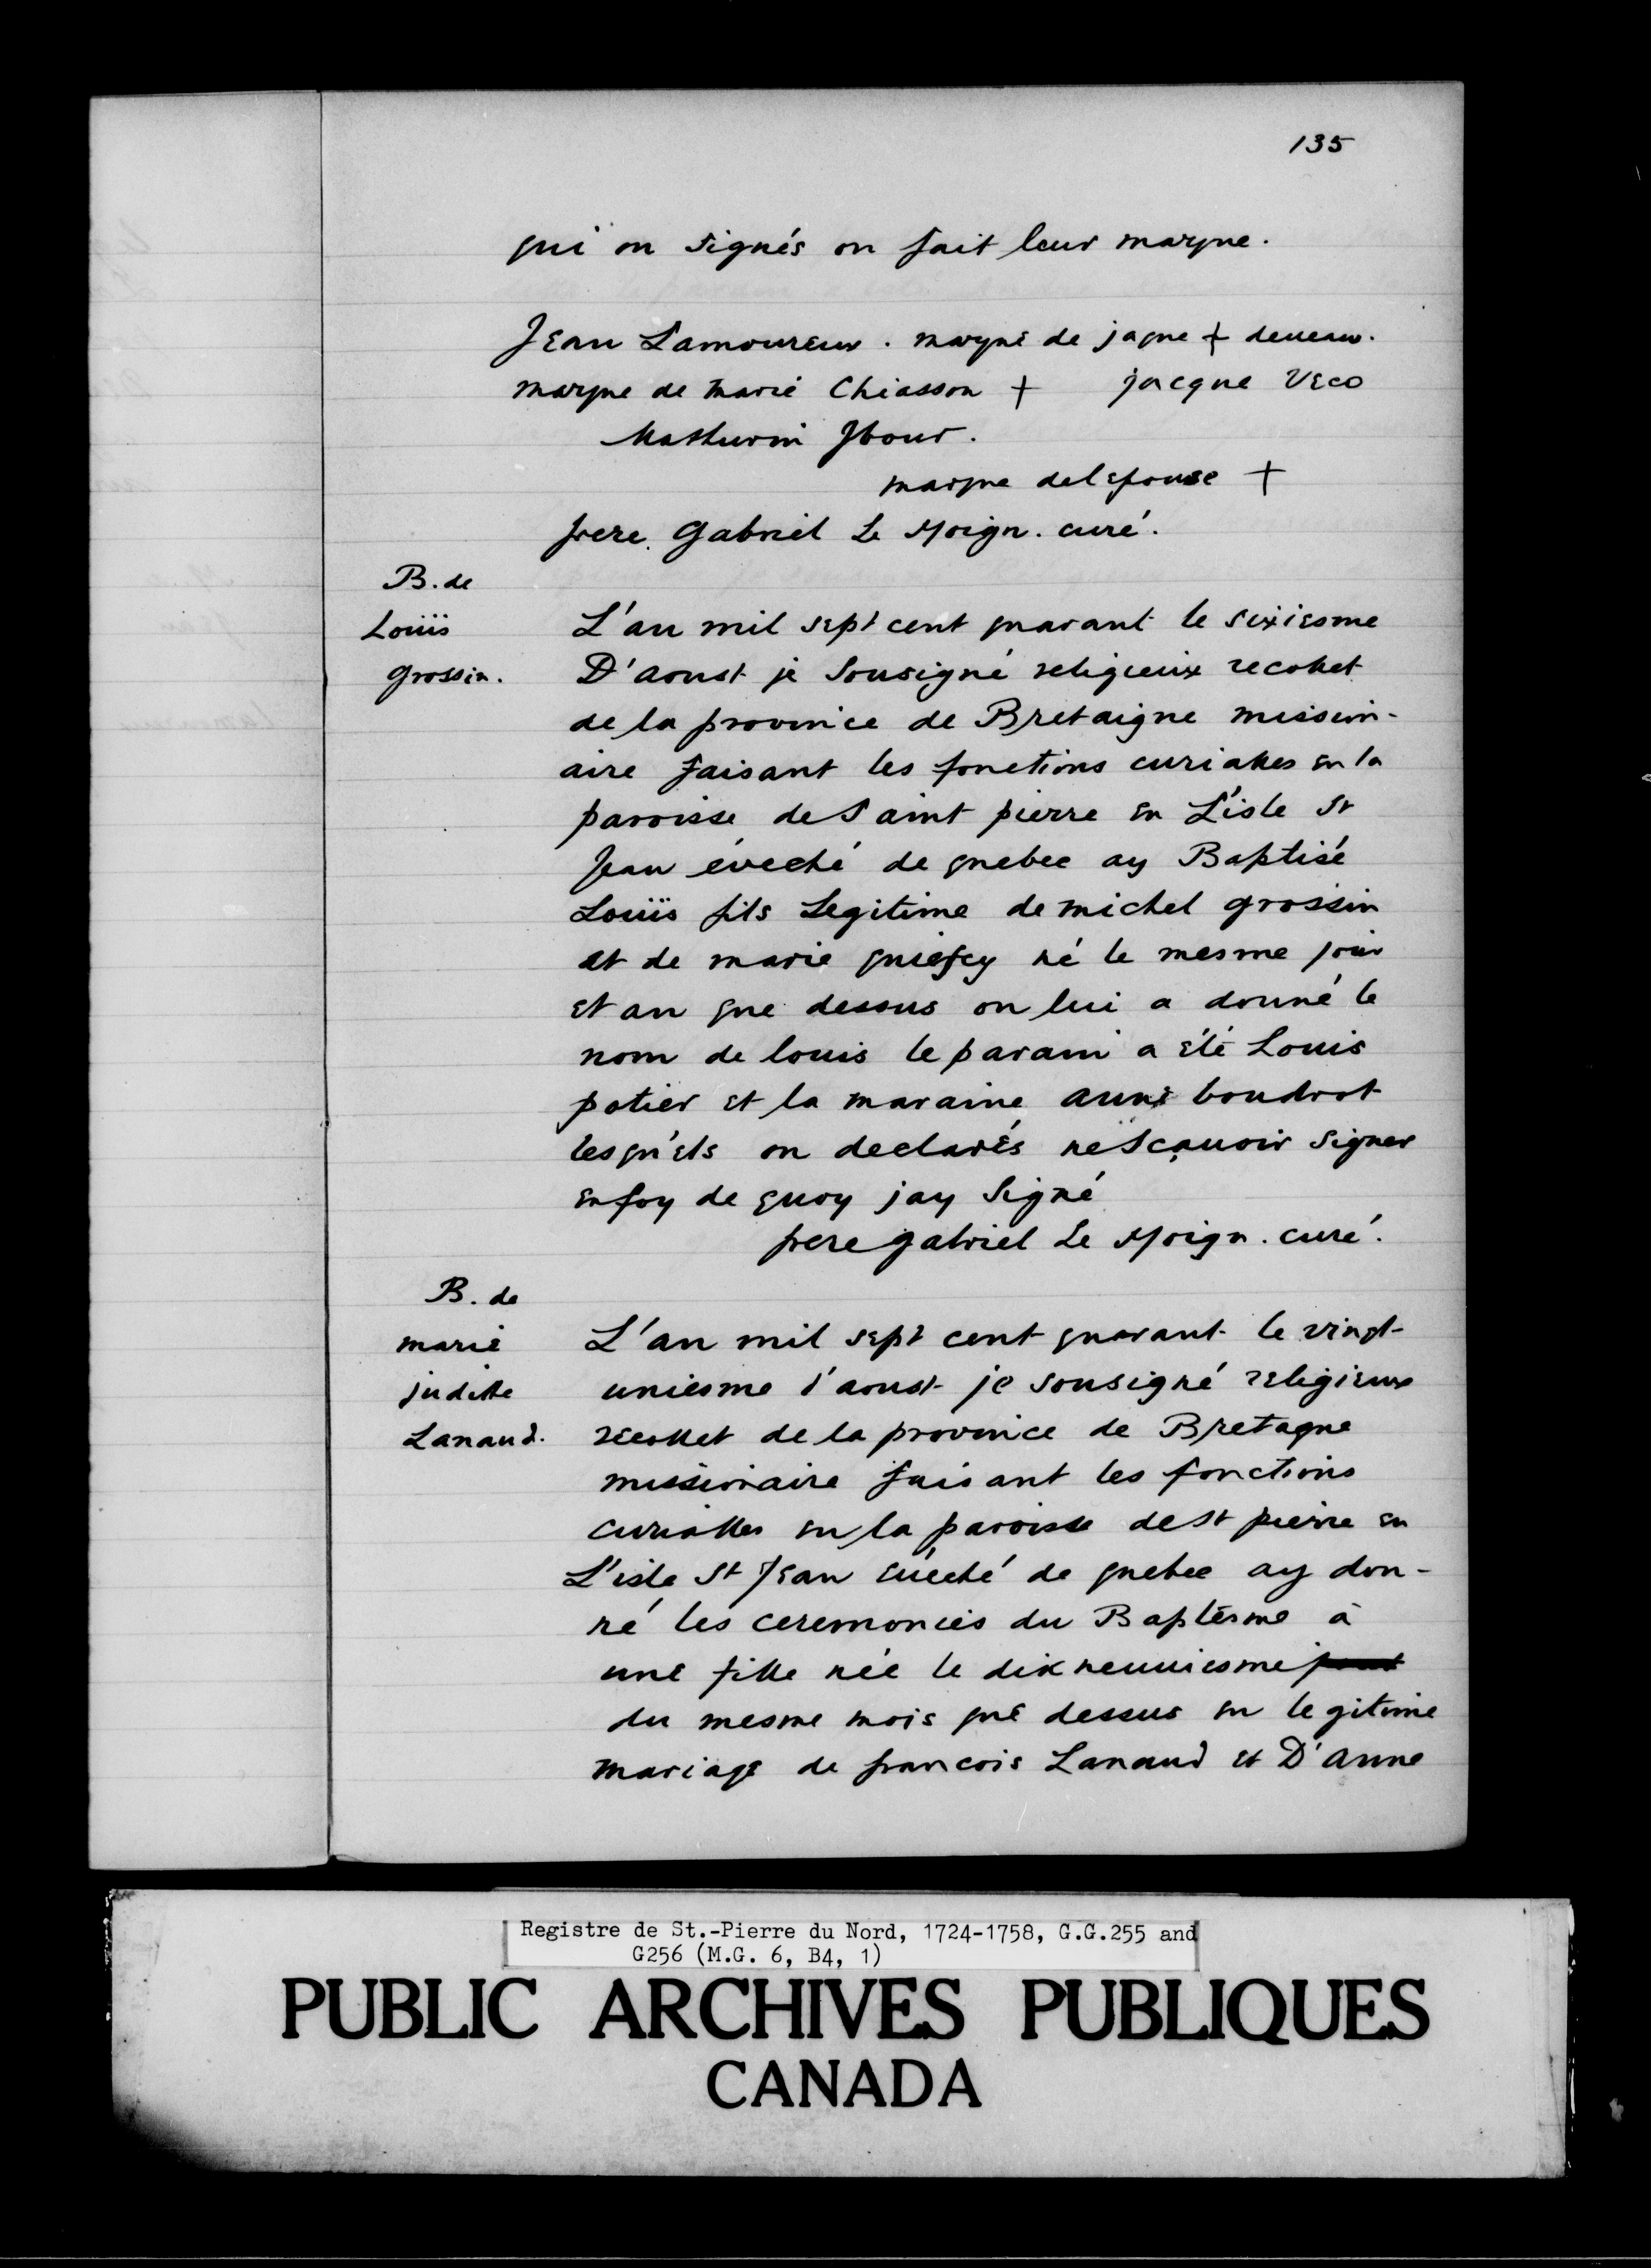 135
qui on signés on fait leur marque.
Jean Lamoureux. marque de jaque + deueaux.
marque de marie Chiasson + jacque Veco
Mathurin Jbour.
marque delepouse +
frere Gabriel Le Moign. curé.
B. de
Louis
grossin.
L'an mil sept cent quarant le sixiesme
D'aoust je Sousigné religieux recollet
de la province de Bretaigne mission-
aire faisant les fonctions curialles en la
paroisse de Saint pierre en L'isle St
Jean éveché de quebec ay Baptisé
Louïs fils Legitime de michel grossin
et de marie quiefey né le mesme jour
et an que dessus on lui a donné le
nom de louis le parain a été Louis
potier et la maraine anne boudrot
lesqu'els on declarés ne Sçauoir Signer
en foy de quoy jay Signé
frere gabriel Le Moign. curé.
B. de
marie
juditte
Lanaud.
L'an mil sept cent quarant le vingt
uniesme d'aoust je sousigné religieux
recollet de la province de Bretagne
missionaire faisant les fonctions
curialles en la paroisse de St pierre en
L'isle St Jean euéché de quebec ay don-
né les ceremonies du Baptésme à
une fille née le dix neuuiesme
du mesme mois que dessus en legitime
mariage de francois Lanaud et D'anne
Registre de St.-Pierre du Nord, 1724-1758, G.G.255 and
G256 (M.G. 6, B4, 1)
PUBLIC ARCHIVES PUBLIQUES
CANADA